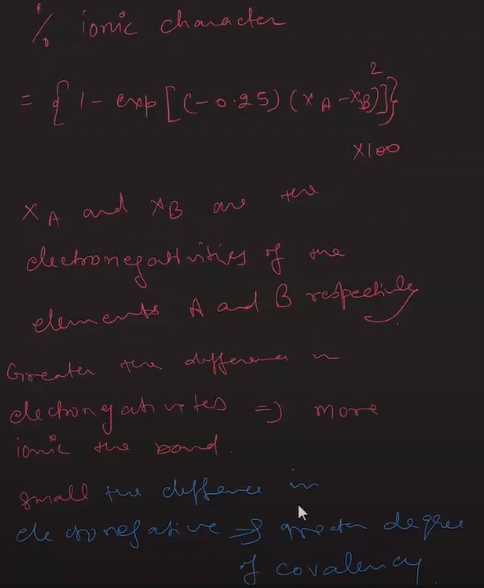 % ionic character
= { 1 - exp [(-0.25) (xA - xB)²]}
x100
xA and xB are the
electronegativities of the
elements A and B respectively
Greater the difference in
electronegativites => more
ionic the bond.
small the diffence in
electronegative → greater degree
of covalency